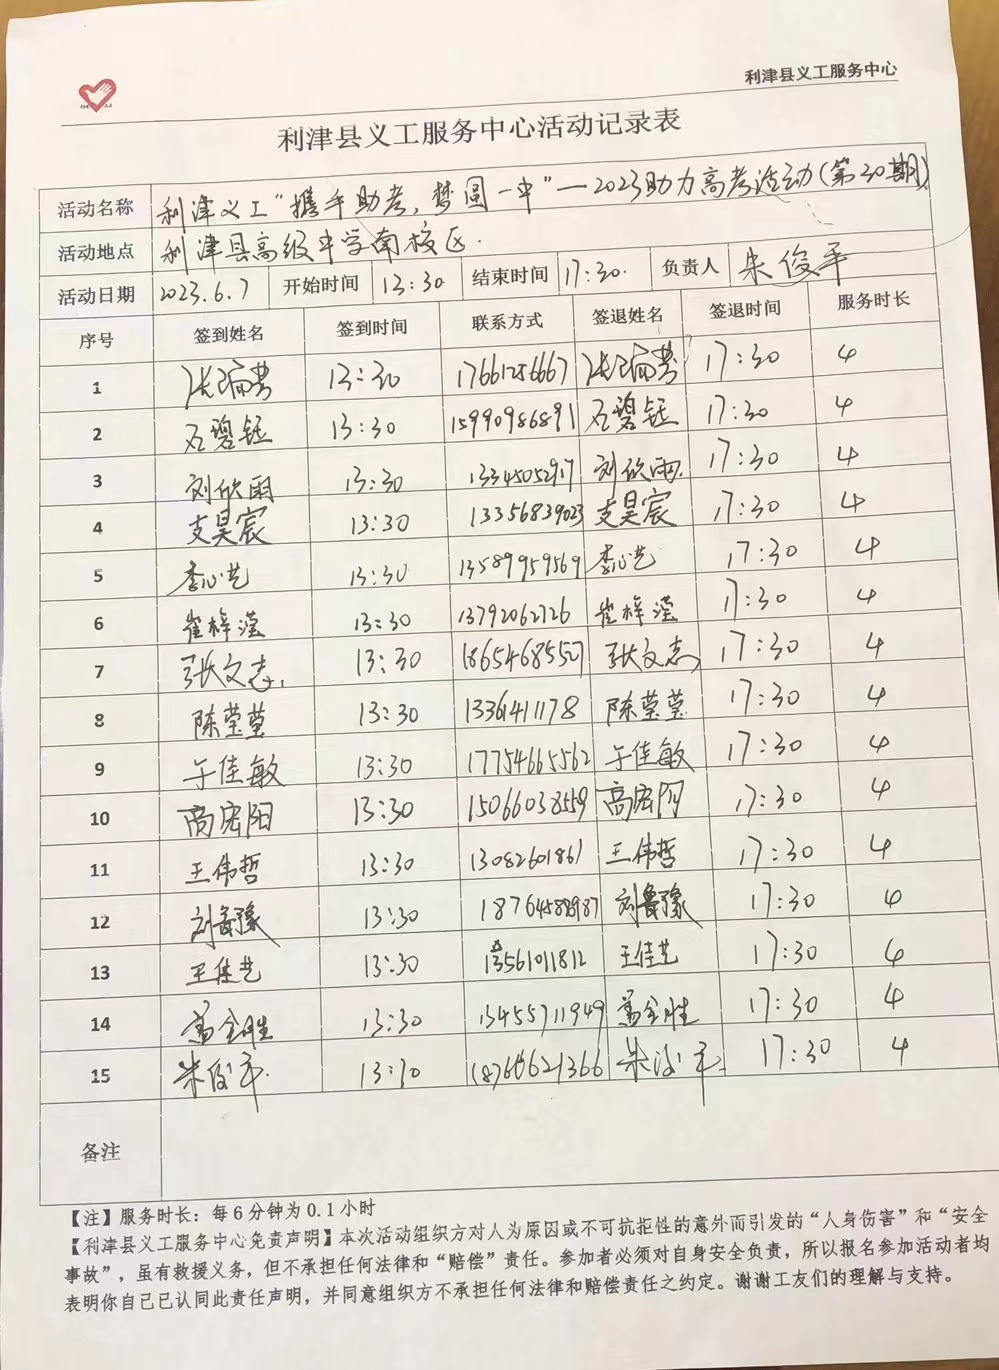 利津县义工服务中心
利津县义工服务中心活动记录表
活动名称 利津义工“携手助考,梦圆一中”—2023助力高考活动(第20期)
活动地点 利津县高级中学南校区.
活动日期 2023.6.7 开始时间 13:30 结束时间 17:30. 负责人 朱俊平
序号 签到姓名 签到时间 联系方式 签退姓名 签退时间 服务时长
1 13:30 17661256667 17:30 4
2 石碧钰 13:30 15990986891 石碧钰 17:30 4
3 刘欣雨 13:30 13345052917 刘欣雨 17:30 4
4 支昊宸 13:30 13356839023 支昊宸 17:30 4
5 李心艺 13:30 13589959569 李心艺 17:30 4
6 崔梓滢 13:30 13792062726 崔梓滢 17:30 4
7 张文志 13:30 18654685507 张文志 17:30 4
8 陈莹莹 13:30 13361411178 陈莹莹 17:30 4
9 于佳敏 13:30 17754665562 于佳敏 17:30 4
10 高宏阳 13:30 15066038559 高宏阳 17:30 4
11 王伟哲 13:30 13082601861 王伟哲 17:30 4
12 刘鲁豫 13:30 18764582987 刘鲁豫 17:30 4
13 王佳艺 13:30 13561011812 王佳艺 17:30 4
14 13:30 13455711949 17:30 4
15 朱俊平 13:30 18766621366 朱俊平 17:30 4
备注
【注】服务时长：每6分钟为0.1小时
【利津县义工服务中心免责声明】本次活动组织方对人为原因或不可抗拒性的意外而引发的“人身伤害”和“安全
事故”，虽有救援义务，但不承担任何法律和“赔偿”责任。参加者必须对自身安全负责，所以报名参加活动者均
表明你自己已认同此责任声明，并同意组织方不承担任何法律和赔偿责任之约定。谢谢工友们的理解与支持。